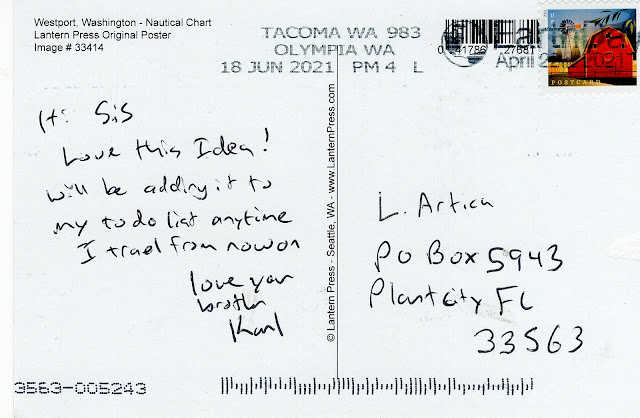 Westport, Washington - Nautical Chart
Lantern Press Original Poster
Image # 33414
TACOMA WA 983
OLYMPIA WA
18 JUN 2021 PM 4 L
0 41786 27681
April 22, 2021
POSTCARD
Hi Sis
Love this Idea!
will be adding it to
my to do list anytime
I travel from now on
love your
brother
Karl
© Lantern Press - Seattle, WA - www.LanternPress.com
L. Artica
PO Box 5943
Plant City FL
33563
3563-005243